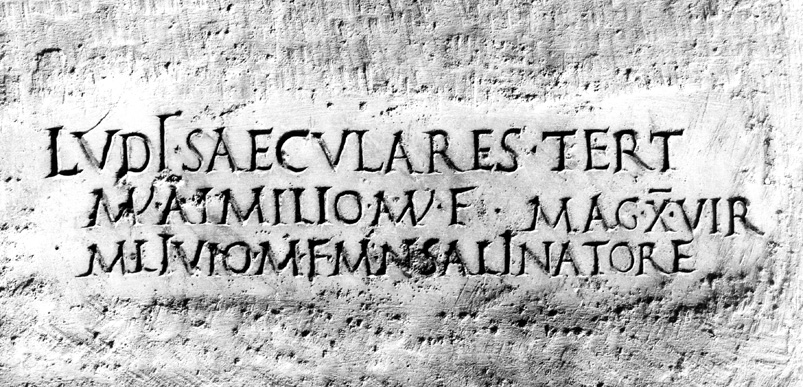 LVDI·SAECVLARES·TERT
M·AIMILIO·M·F· MAG·X·VIR
M·LIVIO·M·F·M·N·SALINATORE